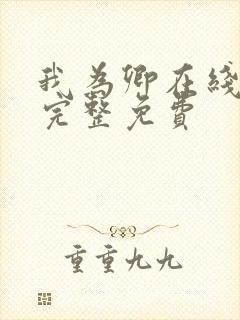 我为卿在线
完整免费
重重九九